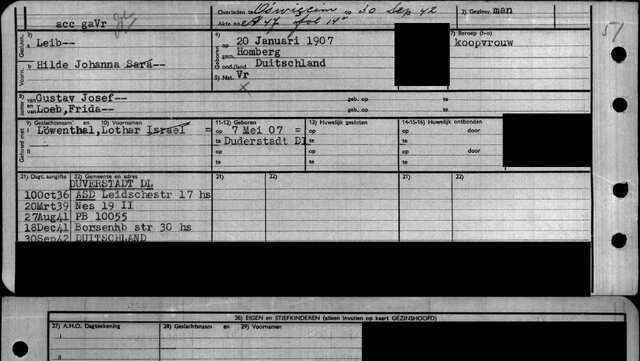 acc gaVr
Overleden te Oswiecim op 30 Sep. 42
Akte no A 47 fol 14v
2) Gezinsv. man
3) Leib--
Hilde Johanna Sara--
4) op 20 Januari 1907
gem. Homberg
prov./land Duitschland
5) Nat. Vr
x
7) Beroep (h-o)
koopvrouw
51
van Gustav Josef-- geb. op te
en van Loeb,Frida-- geb. op te
9) Geslachtsnaam en 10) Voornamen
11-12) Geboren
13) Huwelijk gesloten
14-15-16) Huwelijk ontbonden
Gehuwd met
I Löwenthal,Lothar Israel = op 7 Mei 07 = op op door
te Duderstadt Dl te te
II op op op door
te te te
21) Dagt. aangifte 22) Gemeente en adres
DUVERSTADT DL
10Oct36 ASD Leidschestr 17 hs
20Mrt39 Nes 19 II
27Aug41 PB 10055
18Dec41 Borsenhb str 30 hs
30Sep42 DUITSCHLAND
26) EIGEN en STIEFKINDEREN (alleen invullen op kaart GEZINSHOOFD)
27) A.H.O. Dagteekening
28) Geslachtsnaam en 29) Voornamen